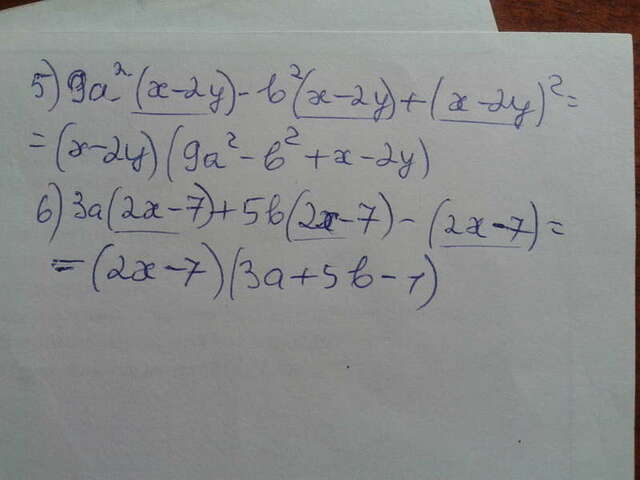 5) 9a²(x-2y)-b²(x-2y)+(x-2y)²=
=(x-2y)(9a²-b²+x-2y)
6) 3a(2x-7)+5b(2x-7)-(2x-7)=
=(2x-7)(3a+5b-1)